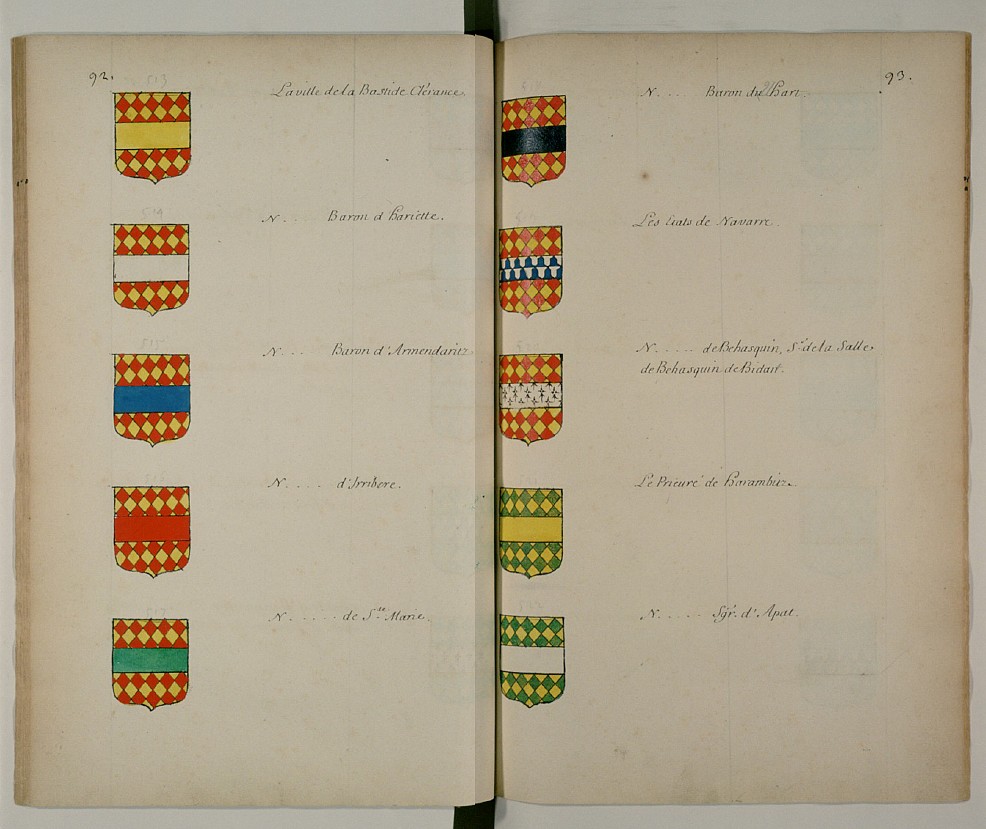 92.
513
La ville de la Bastide Clérance.
514
N. . . Baron d'hariette.
515
N. . . Baron d'Armendaritz
N. . . . d'Irribere.
517
N. . . . . de S.te Marie.
93.
N. . . . Baron du hart.
Les Etats de Navarre.
N. . . . . de Behasquin, S.r de la Salle
de Behasquin de Bidart.
Le Prieuré de harambitz.
N. . . . . Sgr. d'Apat.